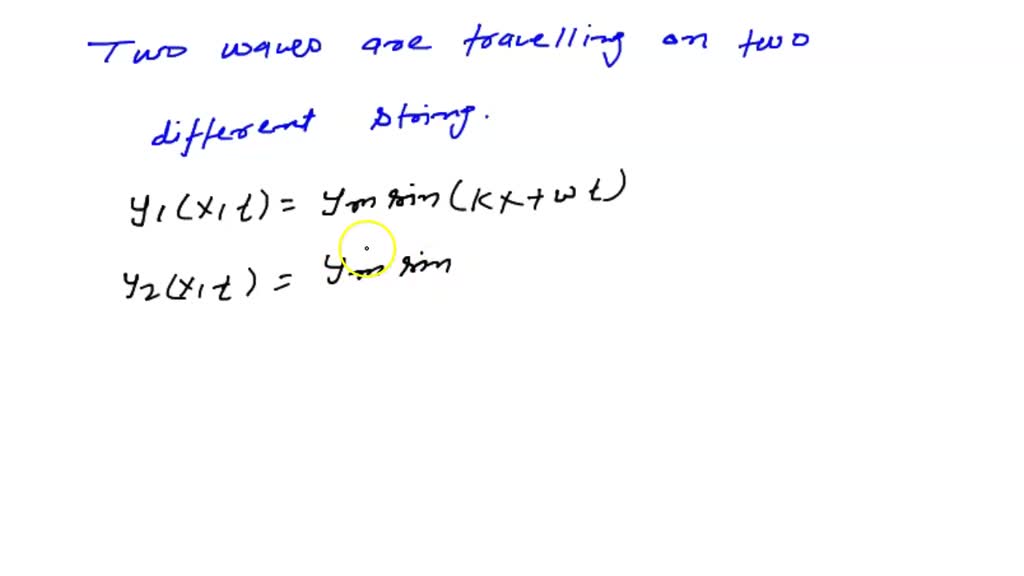 Two waves are travelling on two
different string.
y1(x,t) = ym sin(kx+wt)
y2(x,t) = ym sin